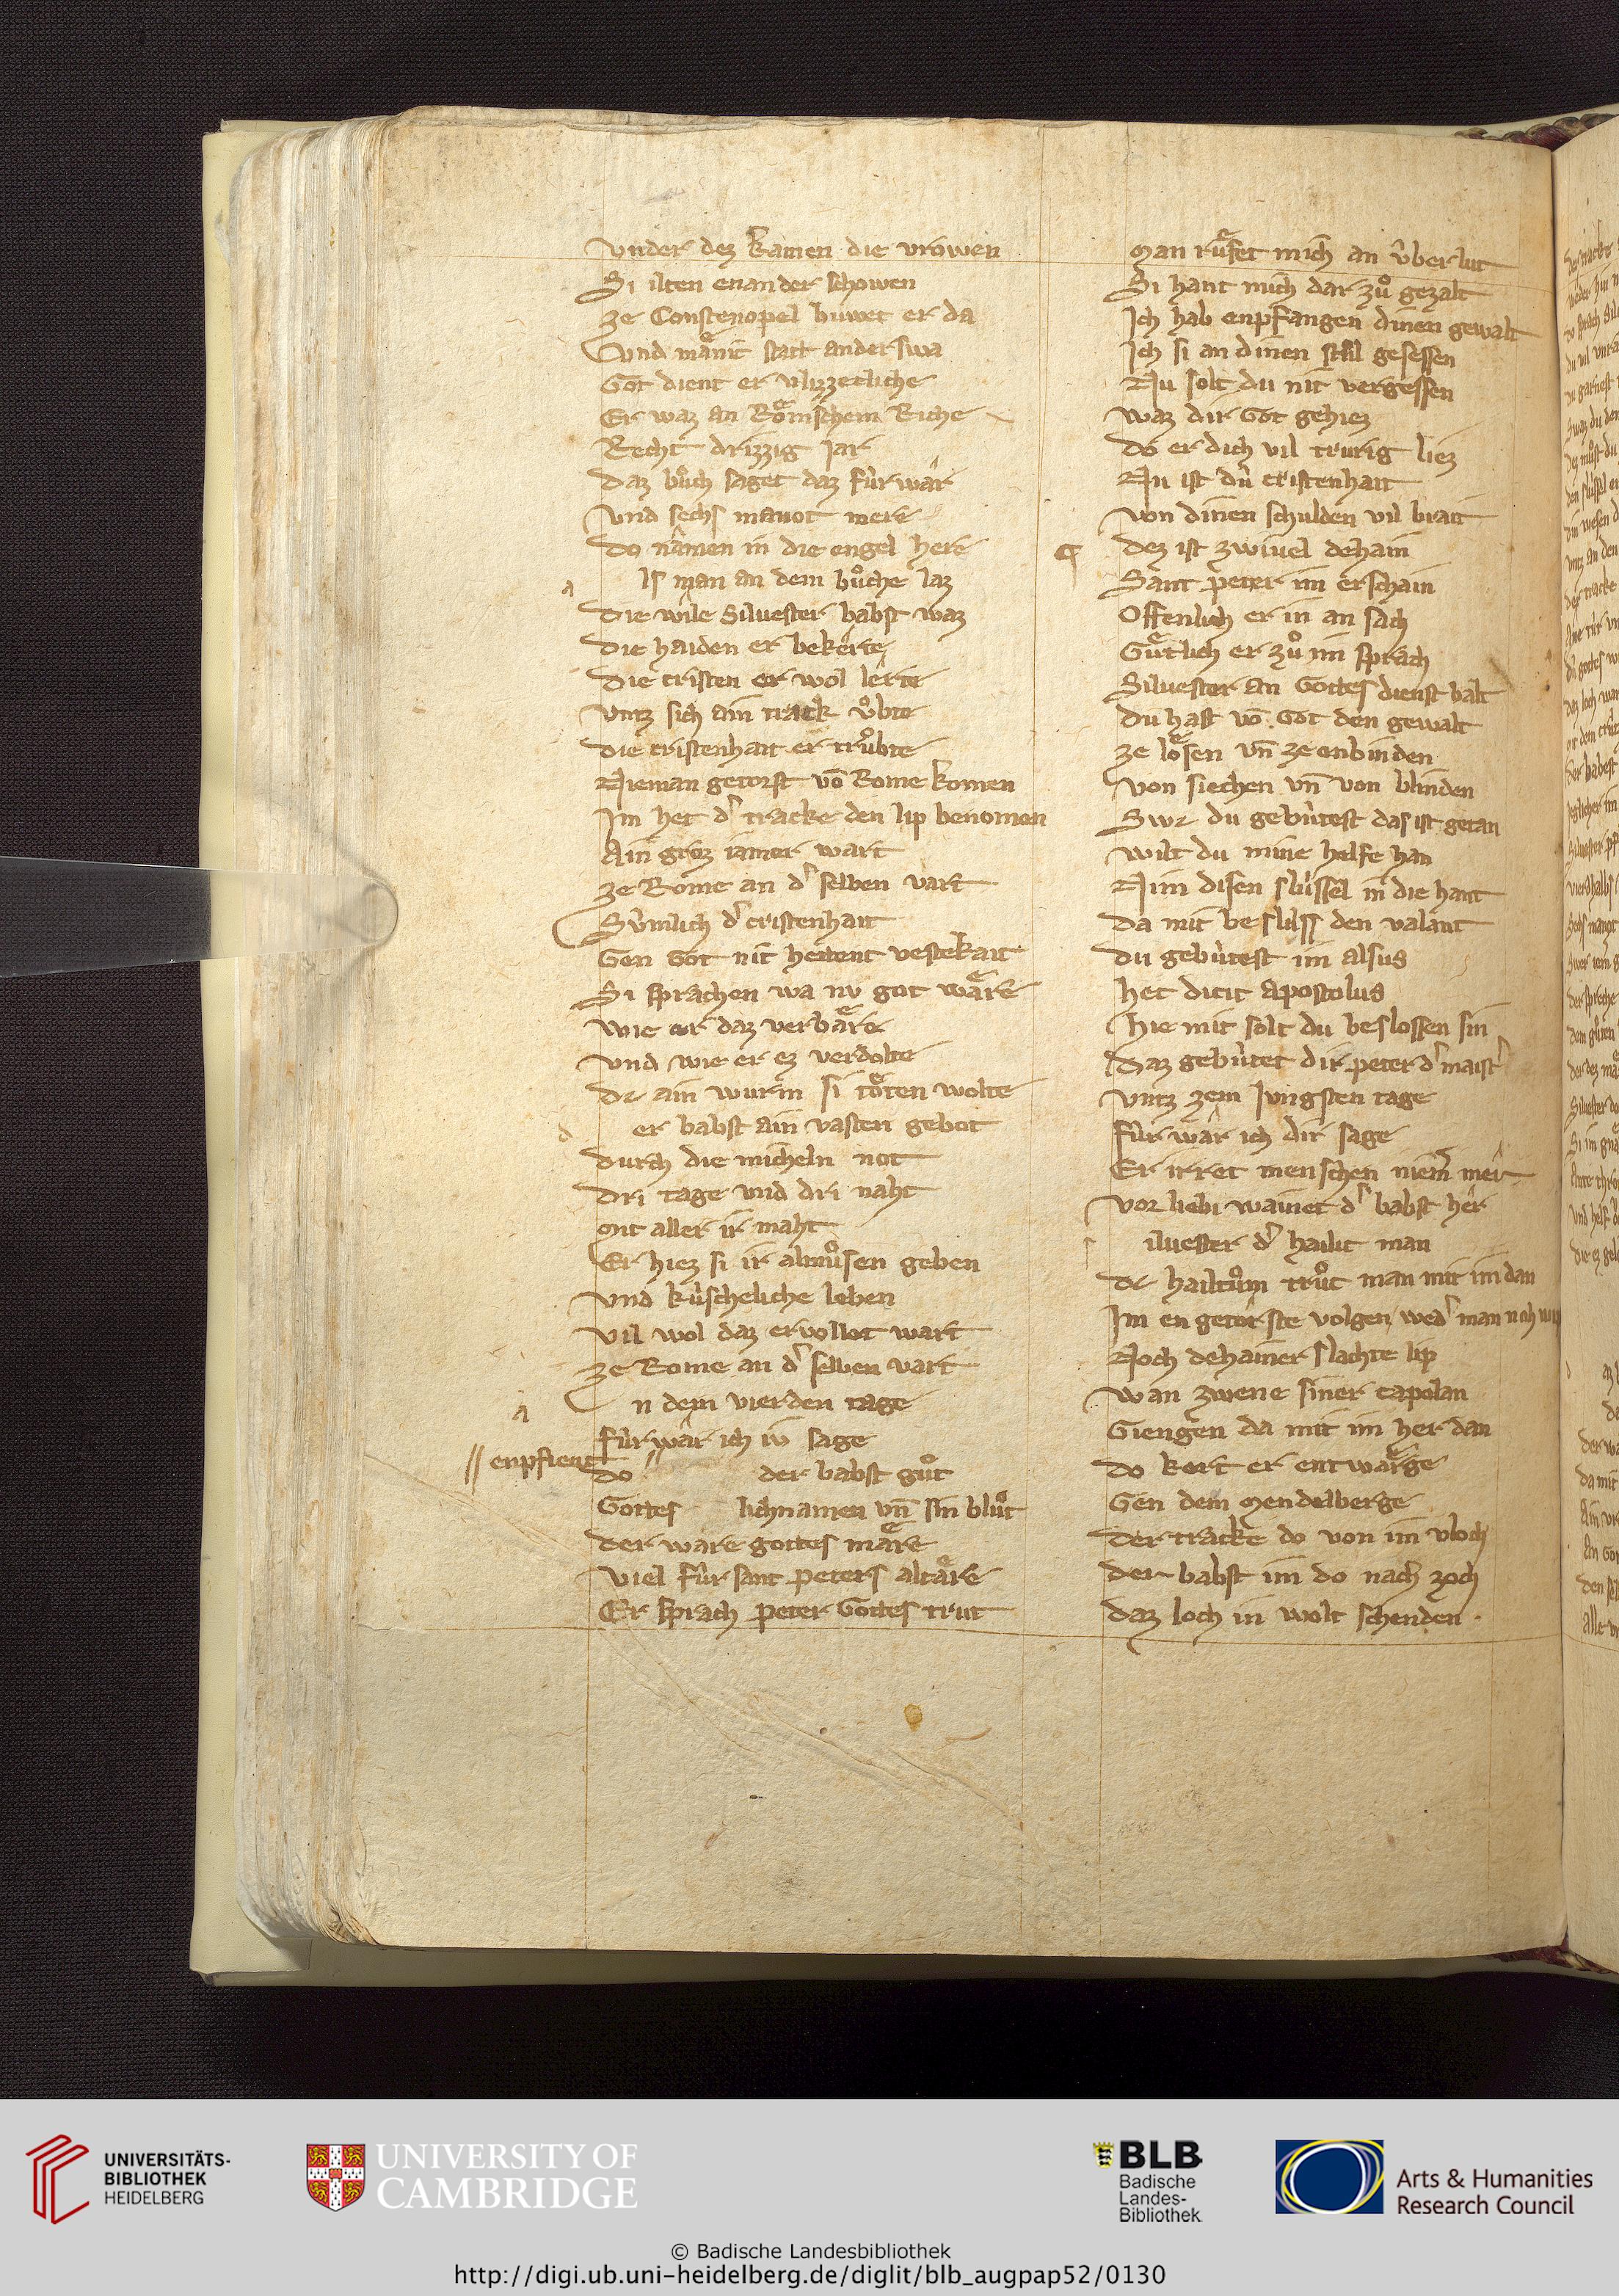 Vnder dez kamen die vrowen
Si ilten enander schowen
ze Constenopel buwet er da
Vnd mänic statt anderswa
Got dient er vlizzecliche
Er waz an Roͤmschem Riche
Recht drizzig Jar
Daz bůch saget daz fúr war
Vnd sechs manot mere
Do namen in die engel here
a ls man an dem bůche laz
Die wile Siluester babst waz
Die haiden er bekerte
Die cristen er wol lerte
Vntz sich ain track vͦbte
Die cristenhait er trůbte
Nieman getorst vō Rome komen
Im het dʼ tracke den lip benomen
Ain groz iamer wart
ze Rome an dʼ selben vart
Sv́mlich dʼ cristenhait
Gen Got nit hettent vestekait
Si sprachen wa nv got waͤre
Wie er daz verbaͤre
Vnd wie er ez verdolte
Dᷣ ain wurm si toͤten wolte
d er babst ain vasten gebot
Durch die micheln not
Dri tage vnd dri naht
Mit aller ir maht
Er hiez si ir almůsen geben
Vnd kúscheliche leben
Vil wol daz ervollot wart
ze Rome an dʼ selben vart
a n dem vierden tage
Fúr war ich iv̄ sage
// enpfieng
Do // der babst gůt
Gottes lichnamen vn̄ sin blůt
Der ware gottes maͤre
Viel fúr sant peters altaͤre
Er sprach peter Gottes trut
Man ruͤfet mich an v́ber lut
Si hant mich dar zů gezalt
Ich hab enpfangen dinen gewalt
Ich si an dinen stůl gesessen
Nu solt du nit vergessen
Waz dir Got gehiez
Do er dich vil trurig liez
Nu ist dú cristenhait
Von dinen schulden vil brait
Dez ist zwiuel dehain
Sant peter im erschain
Offenlich er in an sach
Guͤtlich er zů im sprach
Siluester an Gottes dienst balt
Du hast vō Got den gewalt
ze loͤsen vn̄ ze enbinden
Von siechen vn̄ von blinden
Swᷣ du gebútest das ist getan
Wilt du mine helfe han
Nim disen slússel in die hant
Da mit beslúss den valant
Du gebútest im alsus
Hec dicit apostolus
Hie mit solt du beslossen sin
Daz gebútet dir peter dʼ maistʼ
Vntz zem Jvngsten tage
Fúr war ich dir sage
Er irret menschen niemʼ mer
Vor liebi wainet dʼ babst her
s iluester dʼ hailic man
Dᷣ hailtům trůc man mit im dan
Im en getorste volgen wedʼ man noch wip
Noch dehainer slachte lip
Wan zwene siner capolan
Giengen da mit im her dan
Do kert er entwaͤrge
Gen dem Mendelberge
Der tracke do von im vloch
Der babst im do nach zoch
Daz loch in wolt schenden
UNIVERSITÄTS-
BIBLIOTHEK
HEIDELBERG
UNIVERSITY OF
CAMBRIDGE
BLB
Badische
Landes-
Bibliothek
Arts & Humanities
Research Council
© Badische Landesbibliothek
http://digi.ub.uni-heidelberg.de/diglit/blb_augpap52/0130